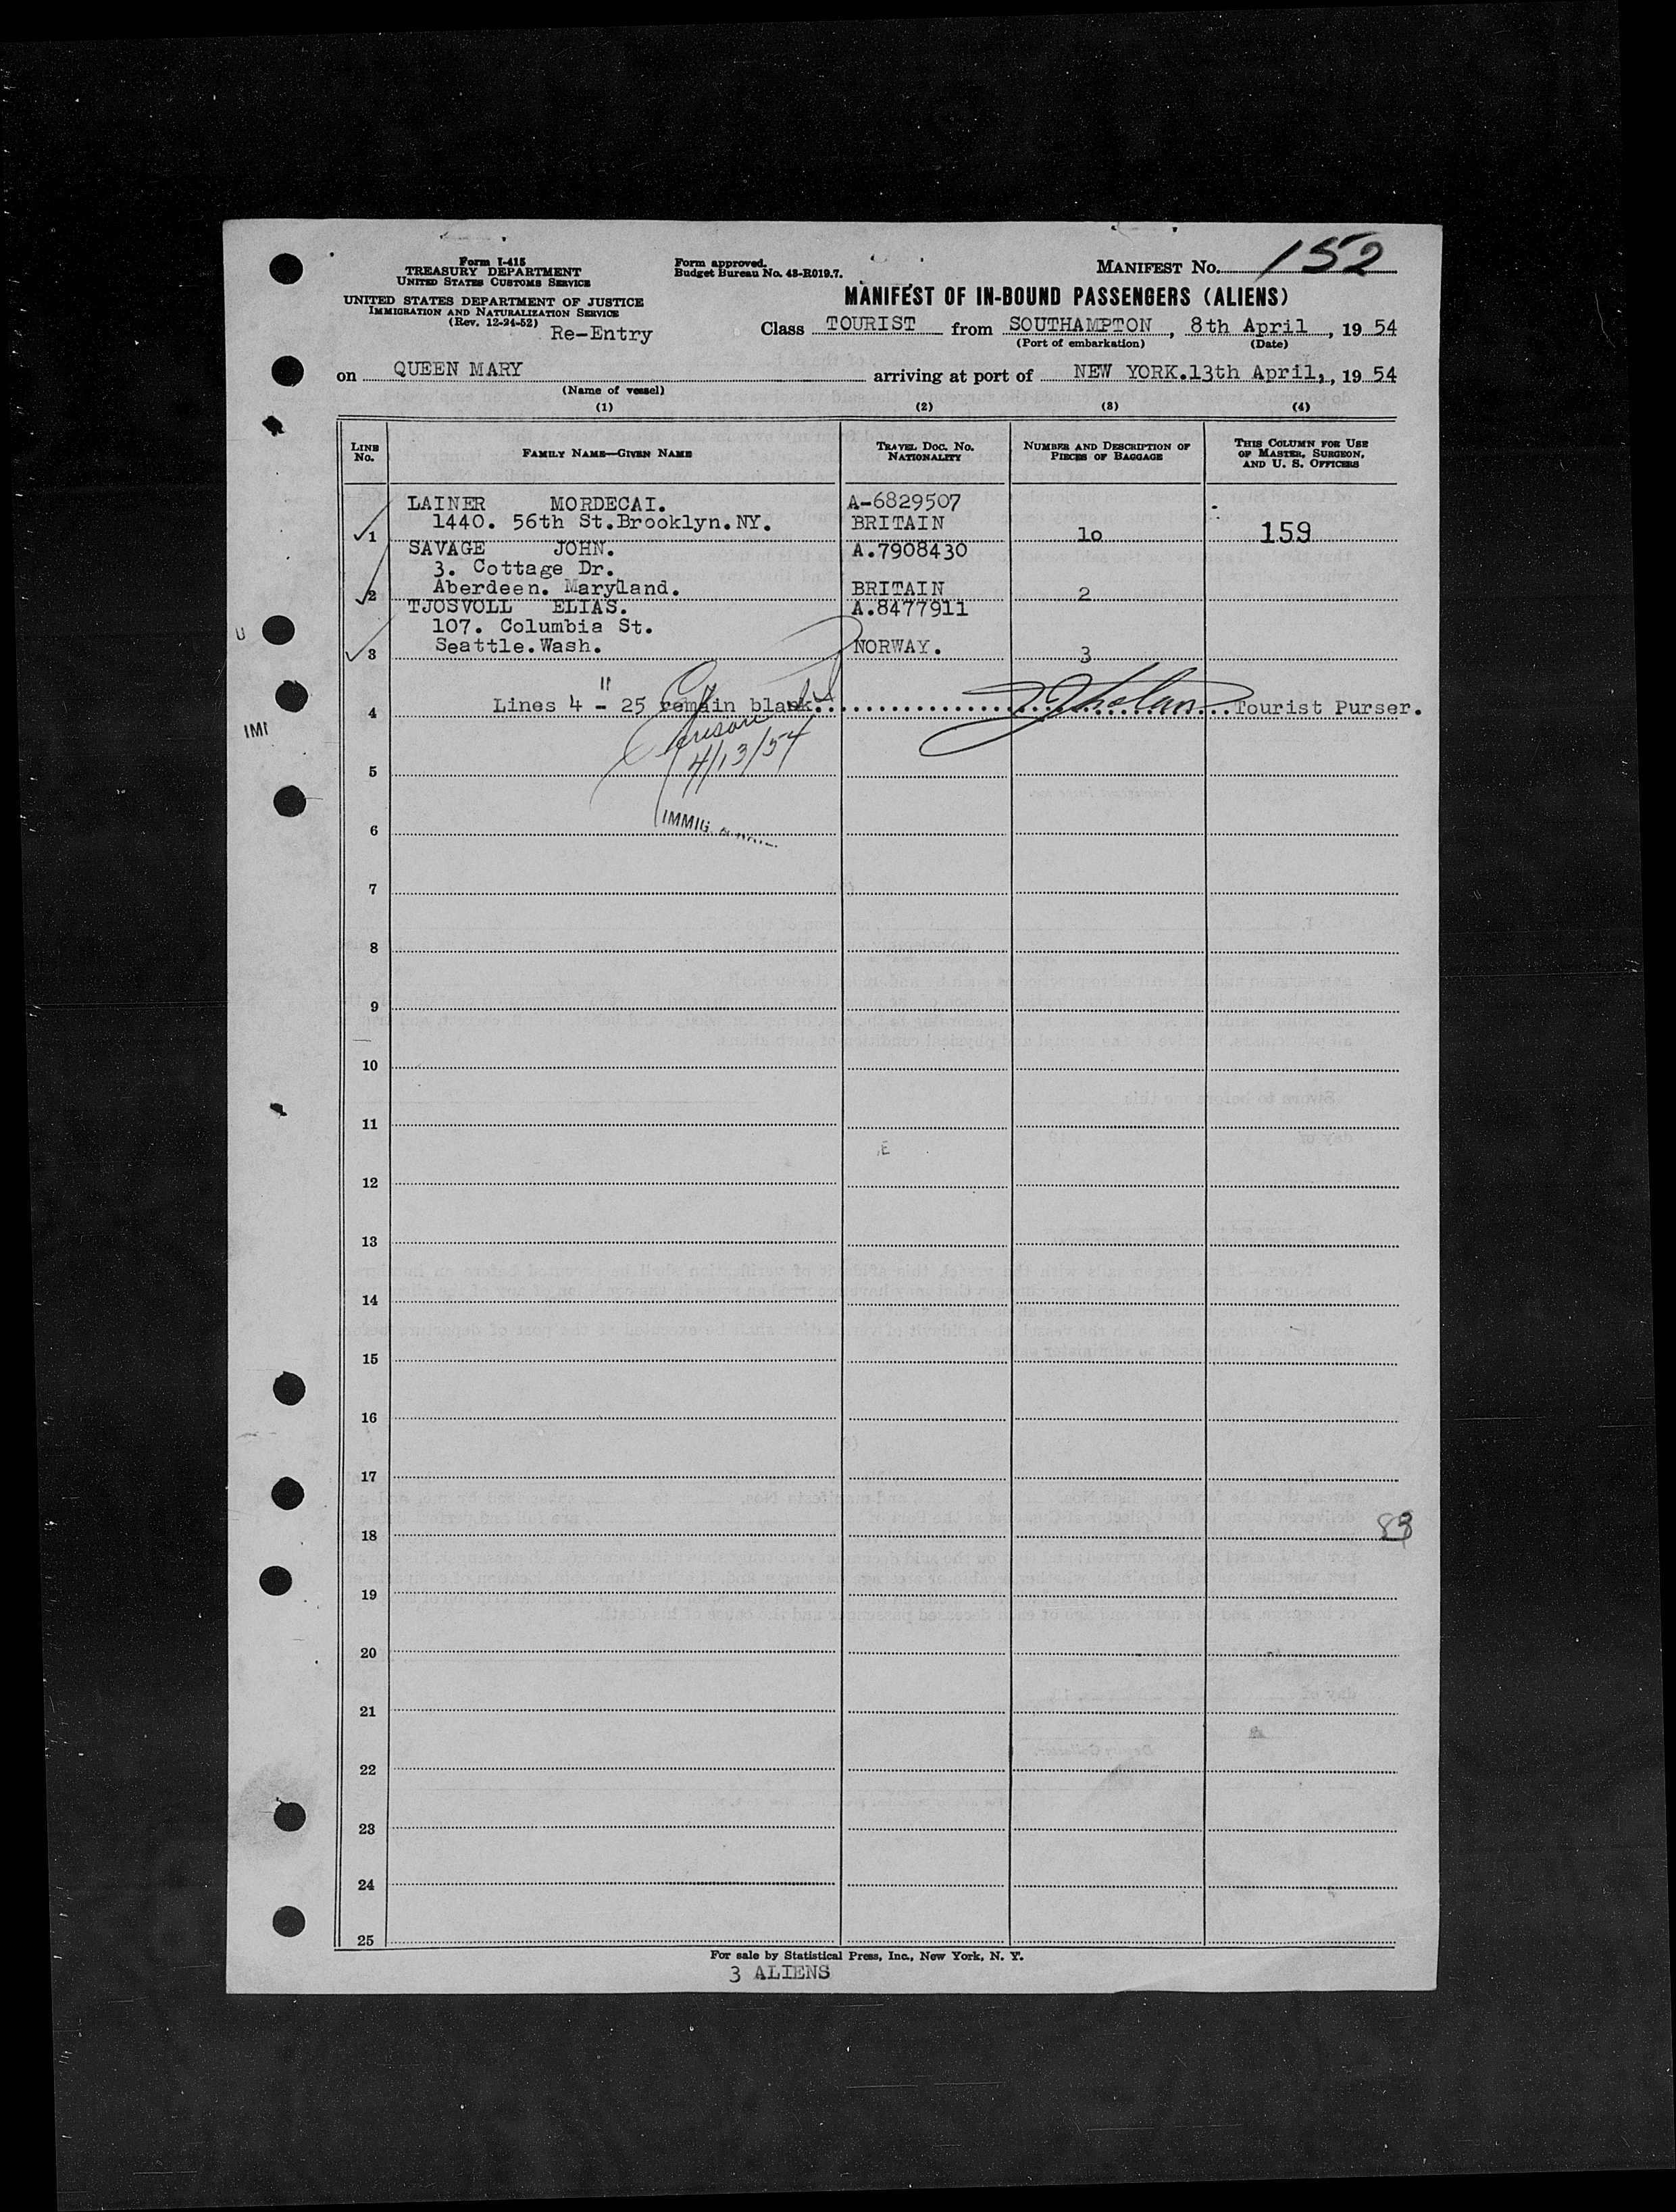 Form I-415
TREASURY DEPARTMENT
UNITED STATES CUSTOMS SERVICE
UNITED STATES DEPARTMENT OF JUSTICE
IMMIGRATION AND NATURALIZATION SERVICE
(Rev. 12-24-52)
Re-Entry
Form approved.
Budget Bureau No. 43-R019.7.
MANIFEST NO. 152
MANIFEST OF IN-BOUND PASSENGERS (ALIENS)
Class TOURIST from SOUTHAMPTON, 8th April, 19 54
(Port of embarkation) (Date)
on QUEEN MARY arriving at port of NEW YORK.13th April,, 19 54
(Name of vessel)
(1) (2) (3) (4)
LINE No. FAMILY NAME—GIVEN NAME TRAVEL DOC. NO. NATIONALITY NUMBER AND DESCRIPTION OF PIECES OF BAGGAGE THIS COLUMN FOR USE OF MASTER, SURGEON, AND U. S. OFFICERS
LAINER MORDECAI. A-6829507
1 1440. 56th St.Brooklyn.NY. BRITAIN 10 159
SAVAGE JOHN. A.7908430
3. Cottage Dr.
2 Aberdeen. Maryland. BRITAIN 2
TJOSVOLL ELIAS. A.8477911
107. Columbia St.
3 Seattle.Wash. NORWAY. 3
4 Lines 4 - 25 remain blank. Tourist Purser.
4/13/54
5
IMMIG. & NAT.
IMI
6
7
8
9
10
11
E
12
13
14
15
16
17
18
19
20
21
22
23
24
25
For sale by Statistical Press, Inc., New York, N. Y.
3 ALIENS